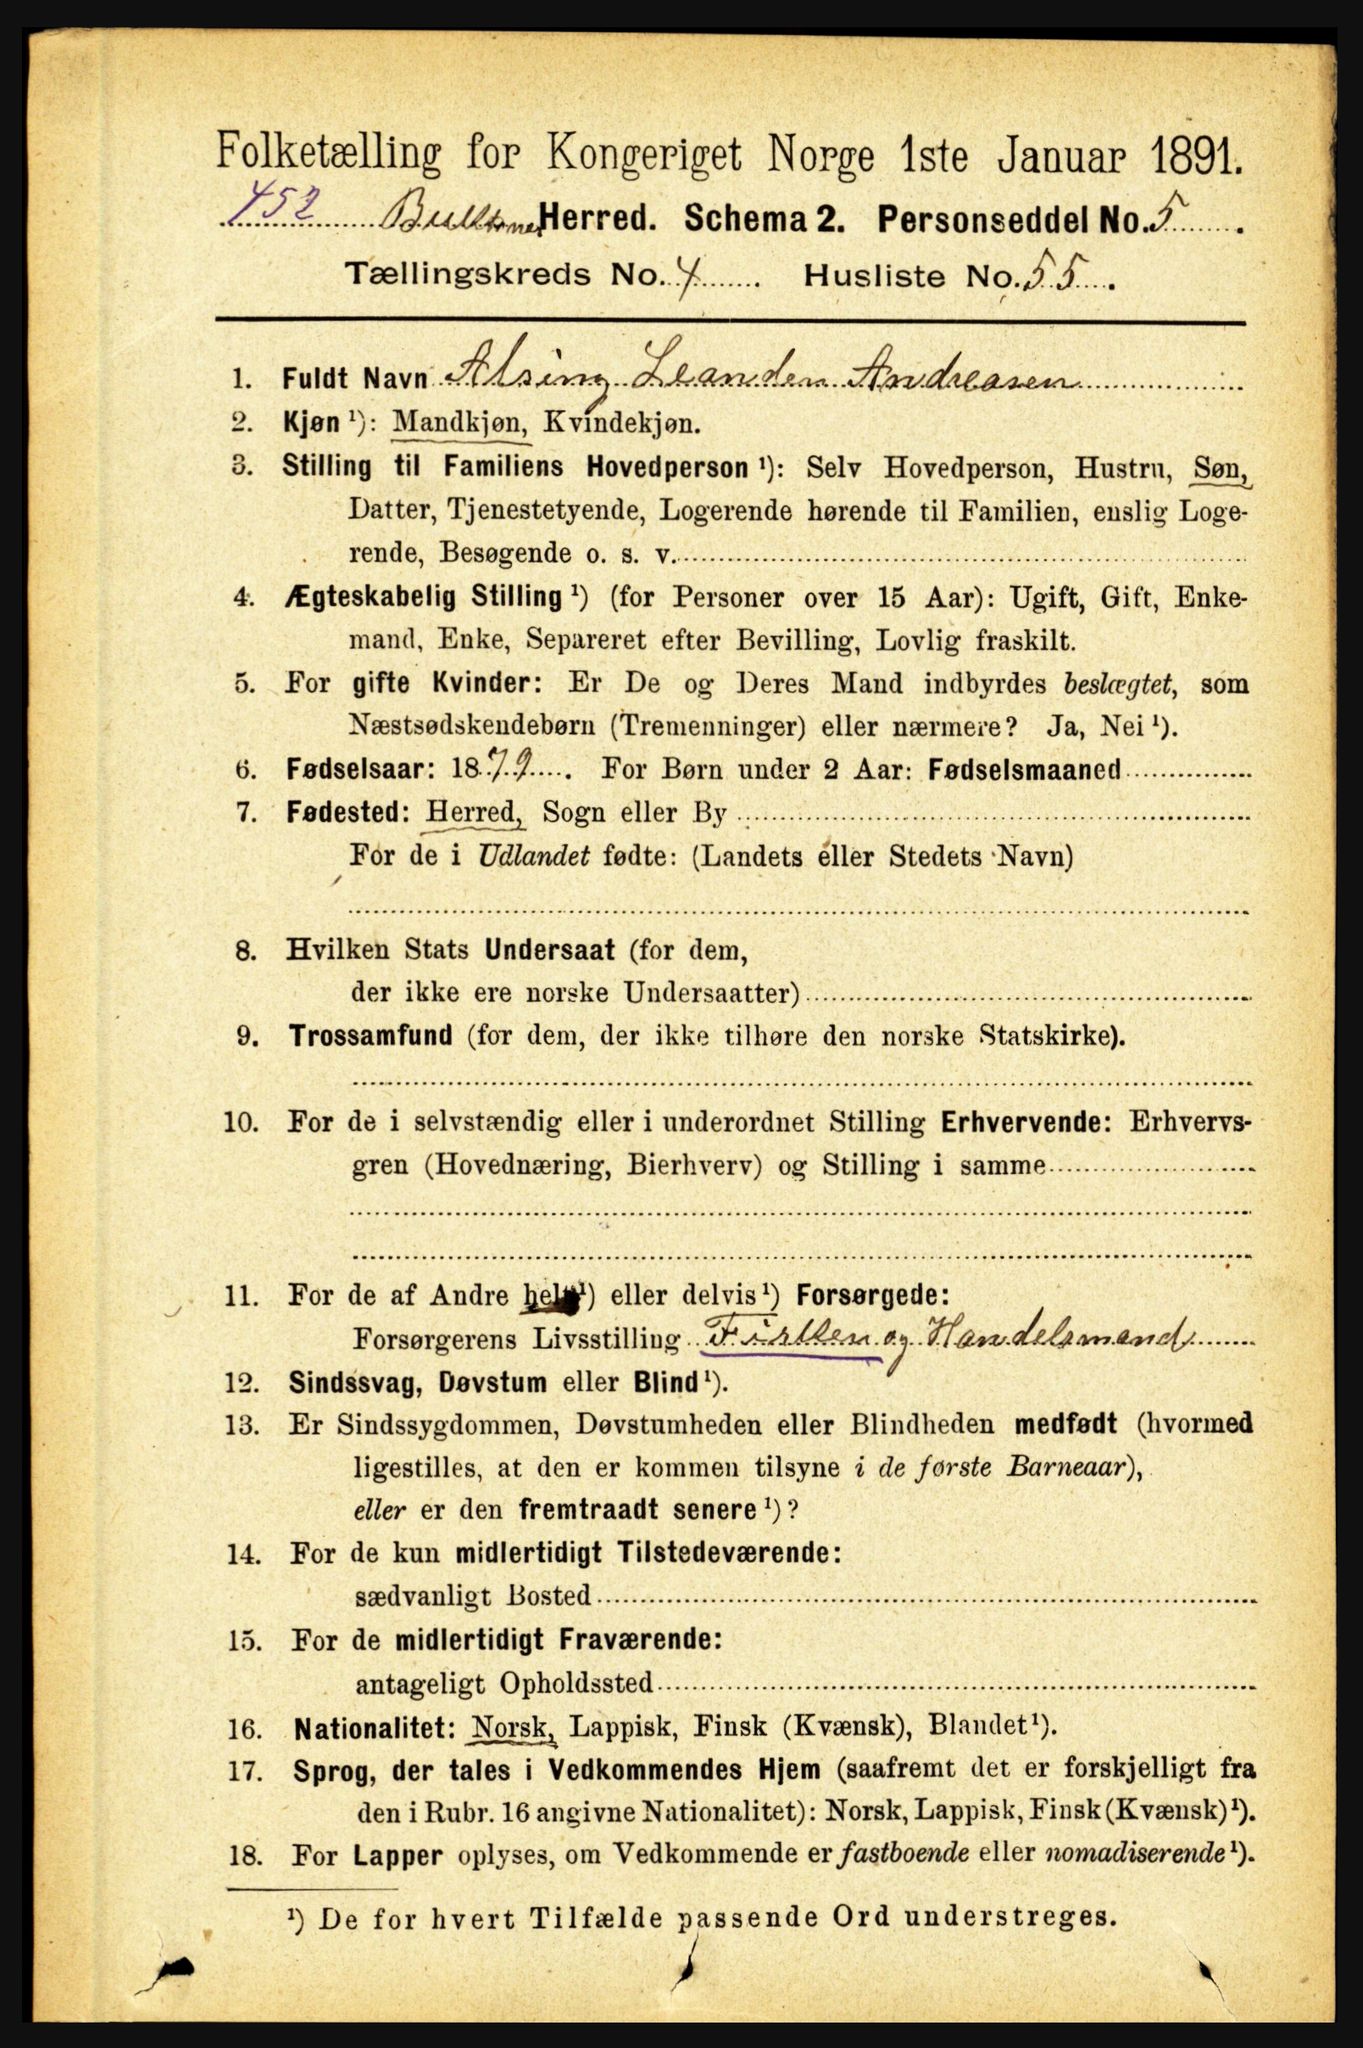 Folketælling for Kongeriget Norge 1ste Januar 1891.
452 Herred. Schema 2. Personseddel No. 5.
Tællingskreds No. 4. Husliste No. 55.
1. Fuldt Navn Alsing Leander Andreasen
2. Kjøn ¹): Mandkjøn, Kvindekjøn.
3. Stilling til Familiens Hovedperson ¹): Selv Hovedperson, Hustru, Søn,
Datter, Tjenestetyende, Logerende hørende til Familien, enslig Loge-
rende, Besøgende o. s. v.
4. Ægteskabelig Stilling ¹) (for Personer over 15 Aar): Ugift, Gift, Enke-
mand, Enke, Separeret efter Bevilling, Lovlig fraskilt.
5. For gifte Kvinder: Er De og Deres Mand indbyrdes beslægtet, som
Næstsødskendebørn (Tremenninger) eller nærmere? Ja, Nei ¹).
6. Fødselsaar: 1879. For Børn under 2 Aar: Fødselsmaaned
7. Fødested: Herred, Sogn eller By
For de i Udlandet fødte: (Landets eller Stedets Navn)
8. Hvilken Stats Undersaat (for dem,
der ikke ere norske Undersaatter)
9. Trossamfund (for dem, der ikke tilhøre den norske Statskirke).
10. For de i selvstændig eller i underordnet Stilling Erhvervende: Erhvervs-
gren (Hovednæring, Bierhverv) og Stilling i samme
11. For de af Andre helt ¹) eller delvis ¹) Forsørgede:
Forsørgerens Livsstilling og Handelsmand
12. Sindssvag, Døvstum eller Blind ¹).
13. Er Sindssygdommen, Døvstumheden eller Blindheden medfødt (hvormed
ligestilles, at den er kommen tilsyne i de første Barneaar),
eller er den fremtraadt senere ¹)?
14. For de kun midlertidigt Tilstedeværende:
sædvanligt Bosted
15. For de midlertidigt Fraværende:
antageligt Opholdssted
16. Nationalitet: Norsk, Lappisk, Finsk (Kvænsk), Blandet ¹).
17. Sprog, der tales i Vedkommendes Hjem (saafremt det er forskjelligt fra
den i Rubr. 16 angivne Nationalitet): Norsk, Lappisk, Finsk (Kvænsk) ¹).
18. For Lapper oplyses, om Vedkommende er fastboende eller nomadiserende ¹).
¹) De for hvert Tilfælde passende Ord understreges.